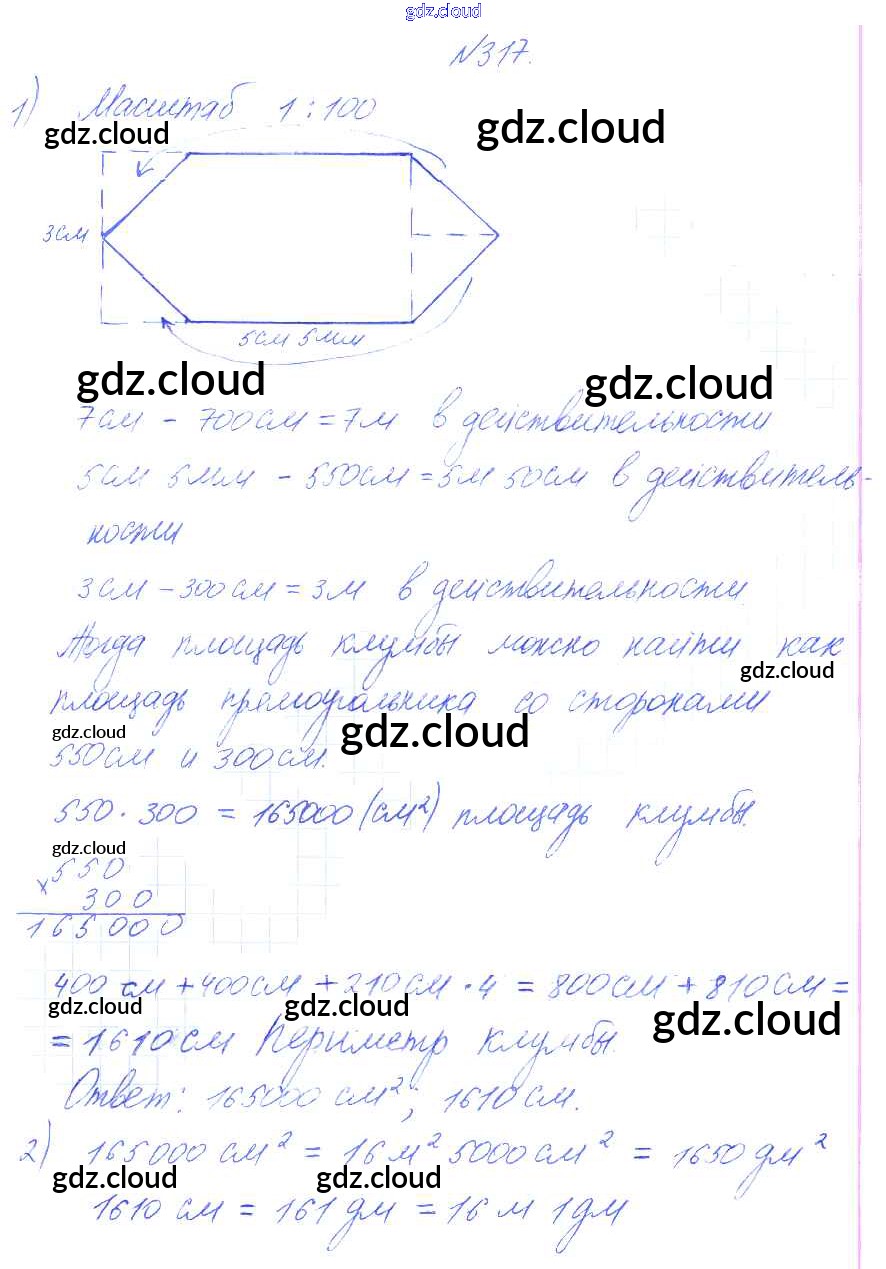 gdz.cloud
№317.
1) Масштаб 1 : 100
gdz.cloud
gdz.cloud
3см
5см 5мм
gdz.cloud
gdz.cloud
7см - 700см = 7м в действительности
5см 5мм - 550см = 5м 50см в действитель-
ности
3см - 300см = 3м в действительности
Тогда площадь клумбы можно найти как
gdz.cloud
площадь прямоугольника со сторонами
gdz.cloud
gdz.cloud
550см и 300см.
550 · 300 = 165000 (см²) площадь клумбы.
gdz.cloud
× 550
300
165000
400 см + 400см + 210см · 4 = 800см + 810см =
gdz.cloud
gdz.cloud
gdz.cloud
= 1610см периметр клумбы.
Ответ: 165000 см²; 1610см.
2) 165000 см² = 16м² 5000см² = 1650 дм²
gdz.cloud
gdz.cloud
1610 см = 161 дм = 16 м 1дм